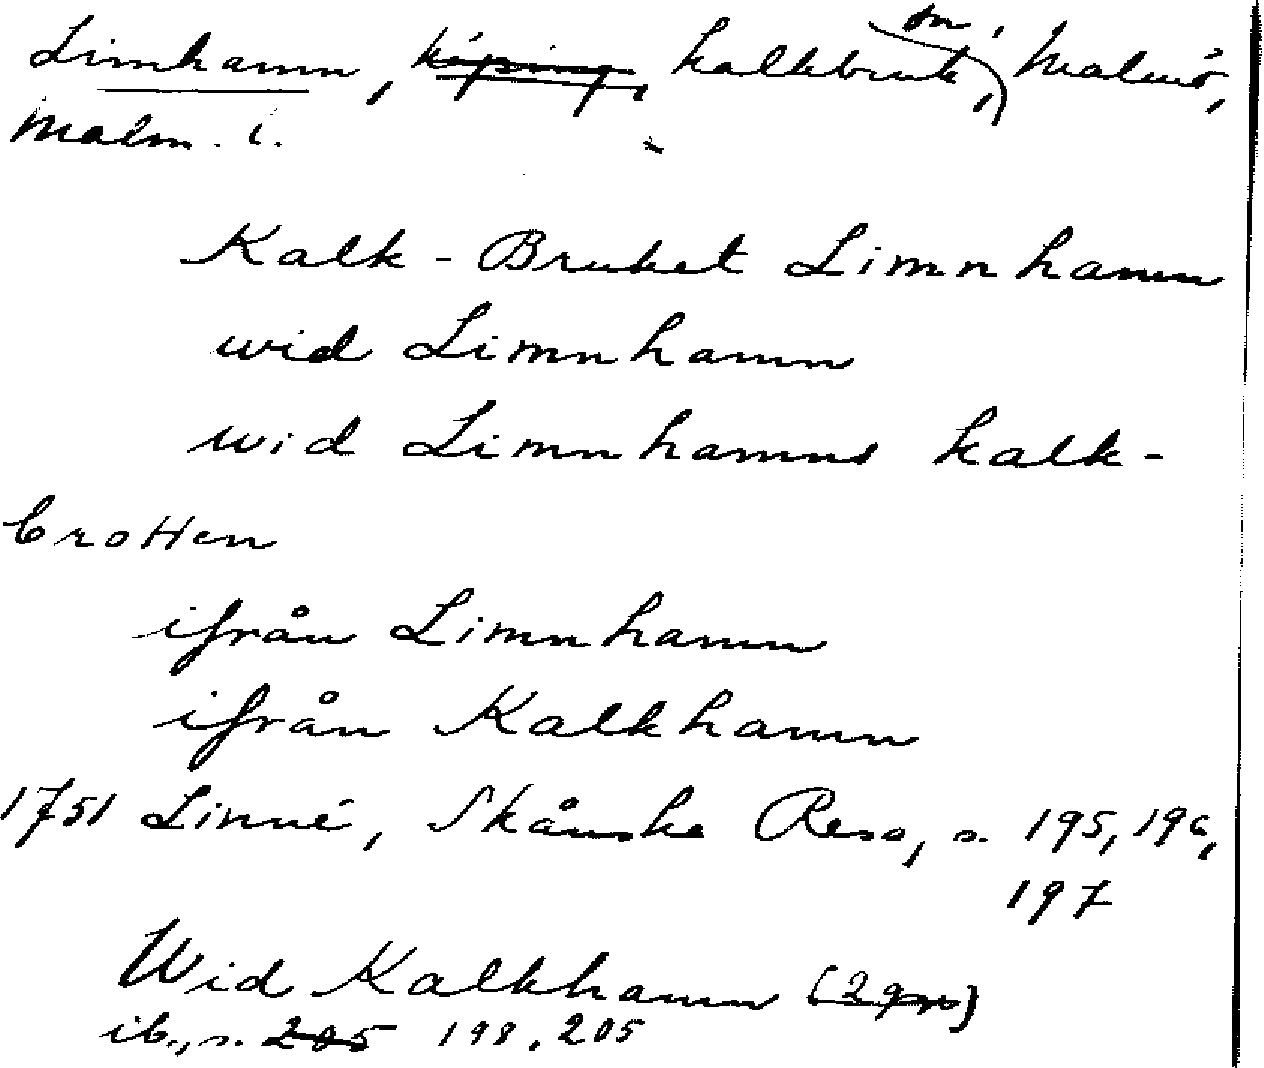 Limhamn, köping, kalkbruk, m, Malmö,
Malm. l.
Kalk-Bruket Limnhamn
wid Limnhamn
wid Limnhamns kalk-
brotten
ifrån Limnhamn
ifrån Kalkhamn
1751 Linné, Skånska Resa, s. 195, 196,
197
Wid Kalkhamn (2 ggr)
ib., s. 205 198, 205